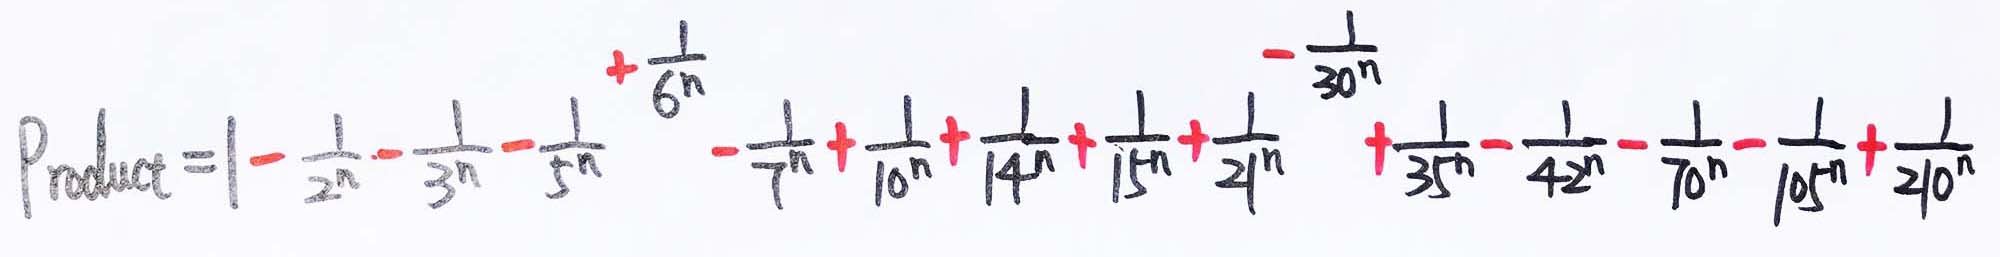 Product = 1 - 1/2ⁿ - 1/3ⁿ - 1/5ⁿ + 1/6ⁿ - 1/7ⁿ + 1/10ⁿ + 1/14ⁿ + 1/15ⁿ + 1/21ⁿ - 1/30ⁿ + 1/35ⁿ - 1/42ⁿ - 1/70ⁿ - 1/105ⁿ + 1/210ⁿ